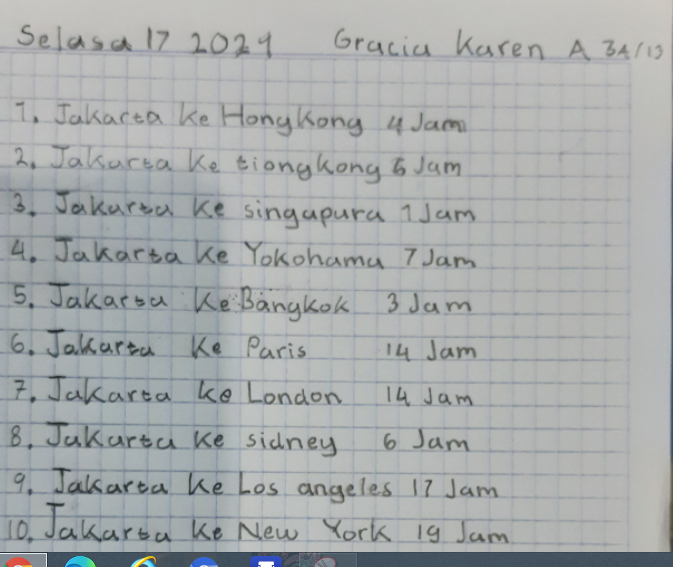 Selasa 17 2024 Gracia Karen A 3A/13
1. Jakarta ke Hongkong 4 Jam
2. Jakarta ke tiongkong 6 Jam
3. Jakarta ke singapura 1 Jam
4. Jakarta ke Yokohama 7 Jam
5. Jakarta ke Bangkok 3 Jam
6. Jakarta ke Paris 14 Jam
7. Jakarta ke London 14 Jam
8. Jakarta ke sidney 6 Jam
9. Jakarta ke Los angeles 17 Jam
10. Jakarta ke New York 19 Jam